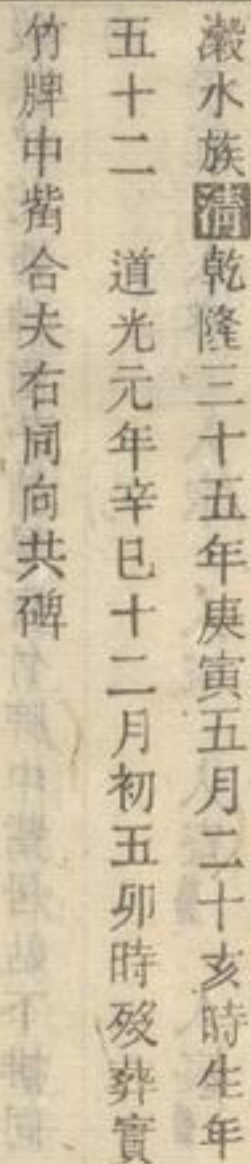 濲水族清乾隆三十五年庚寅五月二十亥時生年
五十二　道光元年辛巳十二月初五卯時殁葬實
竹牌中嵴合夫右同向共碑